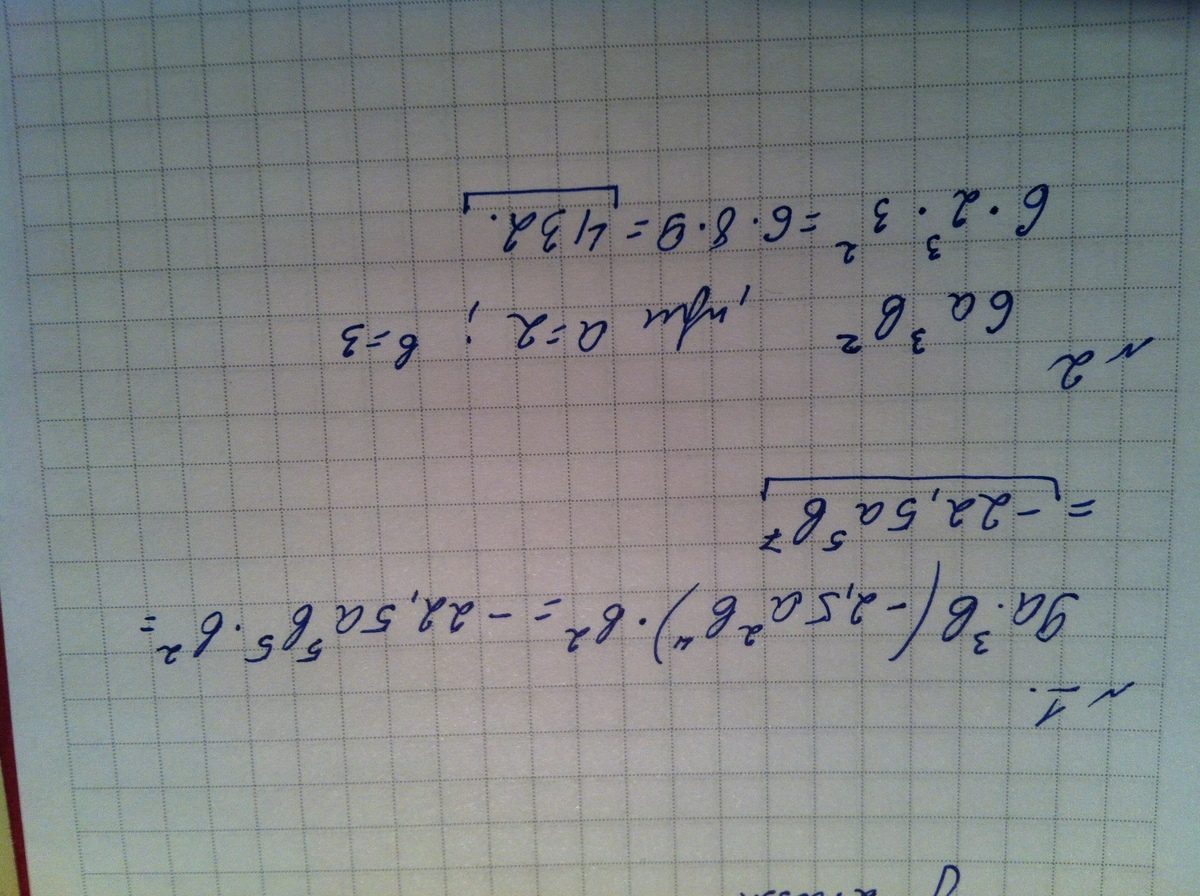 ~ 1.
9a³·b(-2,5a²b⁴)·b² = -22,5a⁵b⁵·b² =
= -22,5a⁵b⁷
~ 2
6a³b², при a=2; b=3
6·2³·3² = 6·8·9 = 432.